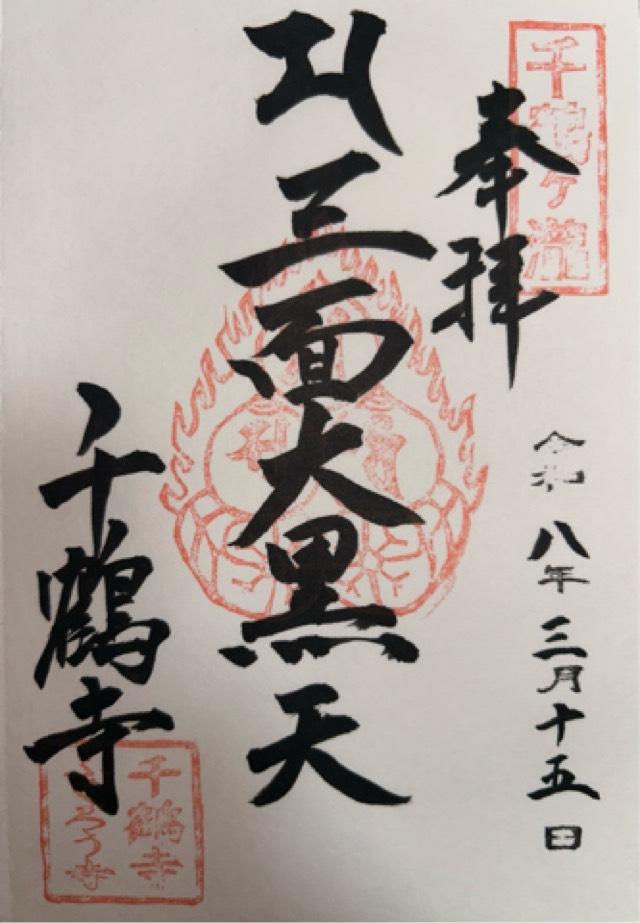 千鶴ヶ瀧
奉拝
令和八年三月十五日
三面大黒天
千鶴寺
千鶴寺